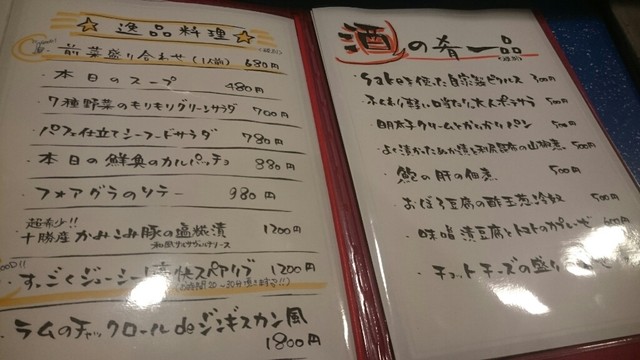 ☆ 逸品料理 ☆
(税別)
前菜盛り合わせ (1人前) 680円
・本日のスープ 480円
・7種野菜のもりもりグリーンサラダ 700円
・パフェ仕立てシーフードサラダ 780円
・本日の鮮魚のカルパッチョ 880円
・フォアグラのソテー 980円
超希少!!
・十勝産かみこみ豚の塩糀漬 1200円
和風サルサヴェルデソース
GOOD!!
・すっごくジューシー!豪快スペアリブ 1200円
・ラムのチャックロールdeジンギスカン風
1800円
酒の肴一品
(税別)
・sakeを使った自家製ピクルス 300円
・ふんわり軽い口当たり大人ポテサラ 500円
・明太子クリームとかりかりパン 500円
・よく漬かったぬか漬と利尻昆布の山椒煮 500円
・鮑の肝の佃煮 500円
・おぼろ豆腐の酢玉葱冷奴 500円
・味噌漬豆腐とトマトのカプレーゼ 600円
・チョットチーズの盛り合わせ